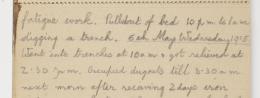 fatigue work. Pulled out of bed 10 p.m to 1 a.m
digging a trench. 6th May Wednesday 1915.
Went into trenches at 10 a m & got relieved at
2.30 p.m. Occupied dugouts till 3.30 a.m
next morn after receiving 2 days iron